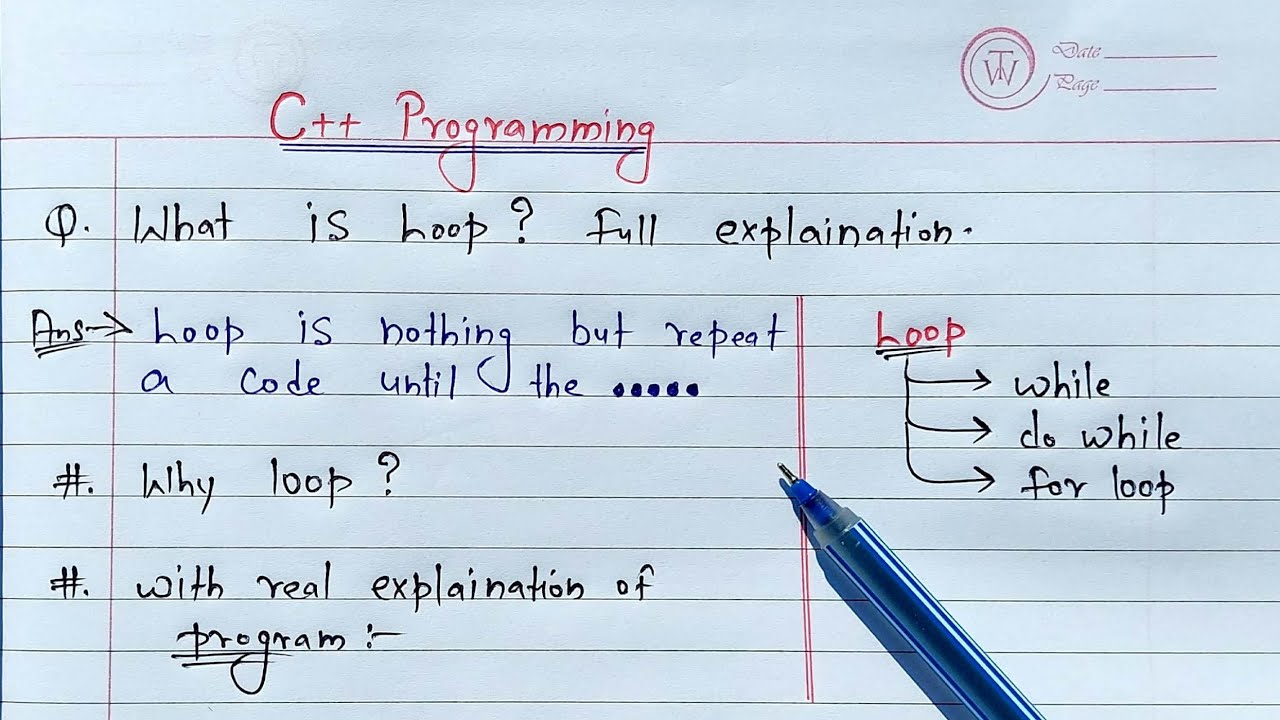 TW
Date
Page
C++ Programming
Q. What is Loop? full explaination.
Ans→ Loop is nothing but repeat
a code until the .....
#. Why loop?
#. with real explaination of
program:-
Loop
→ while
→ do while
→ for loop